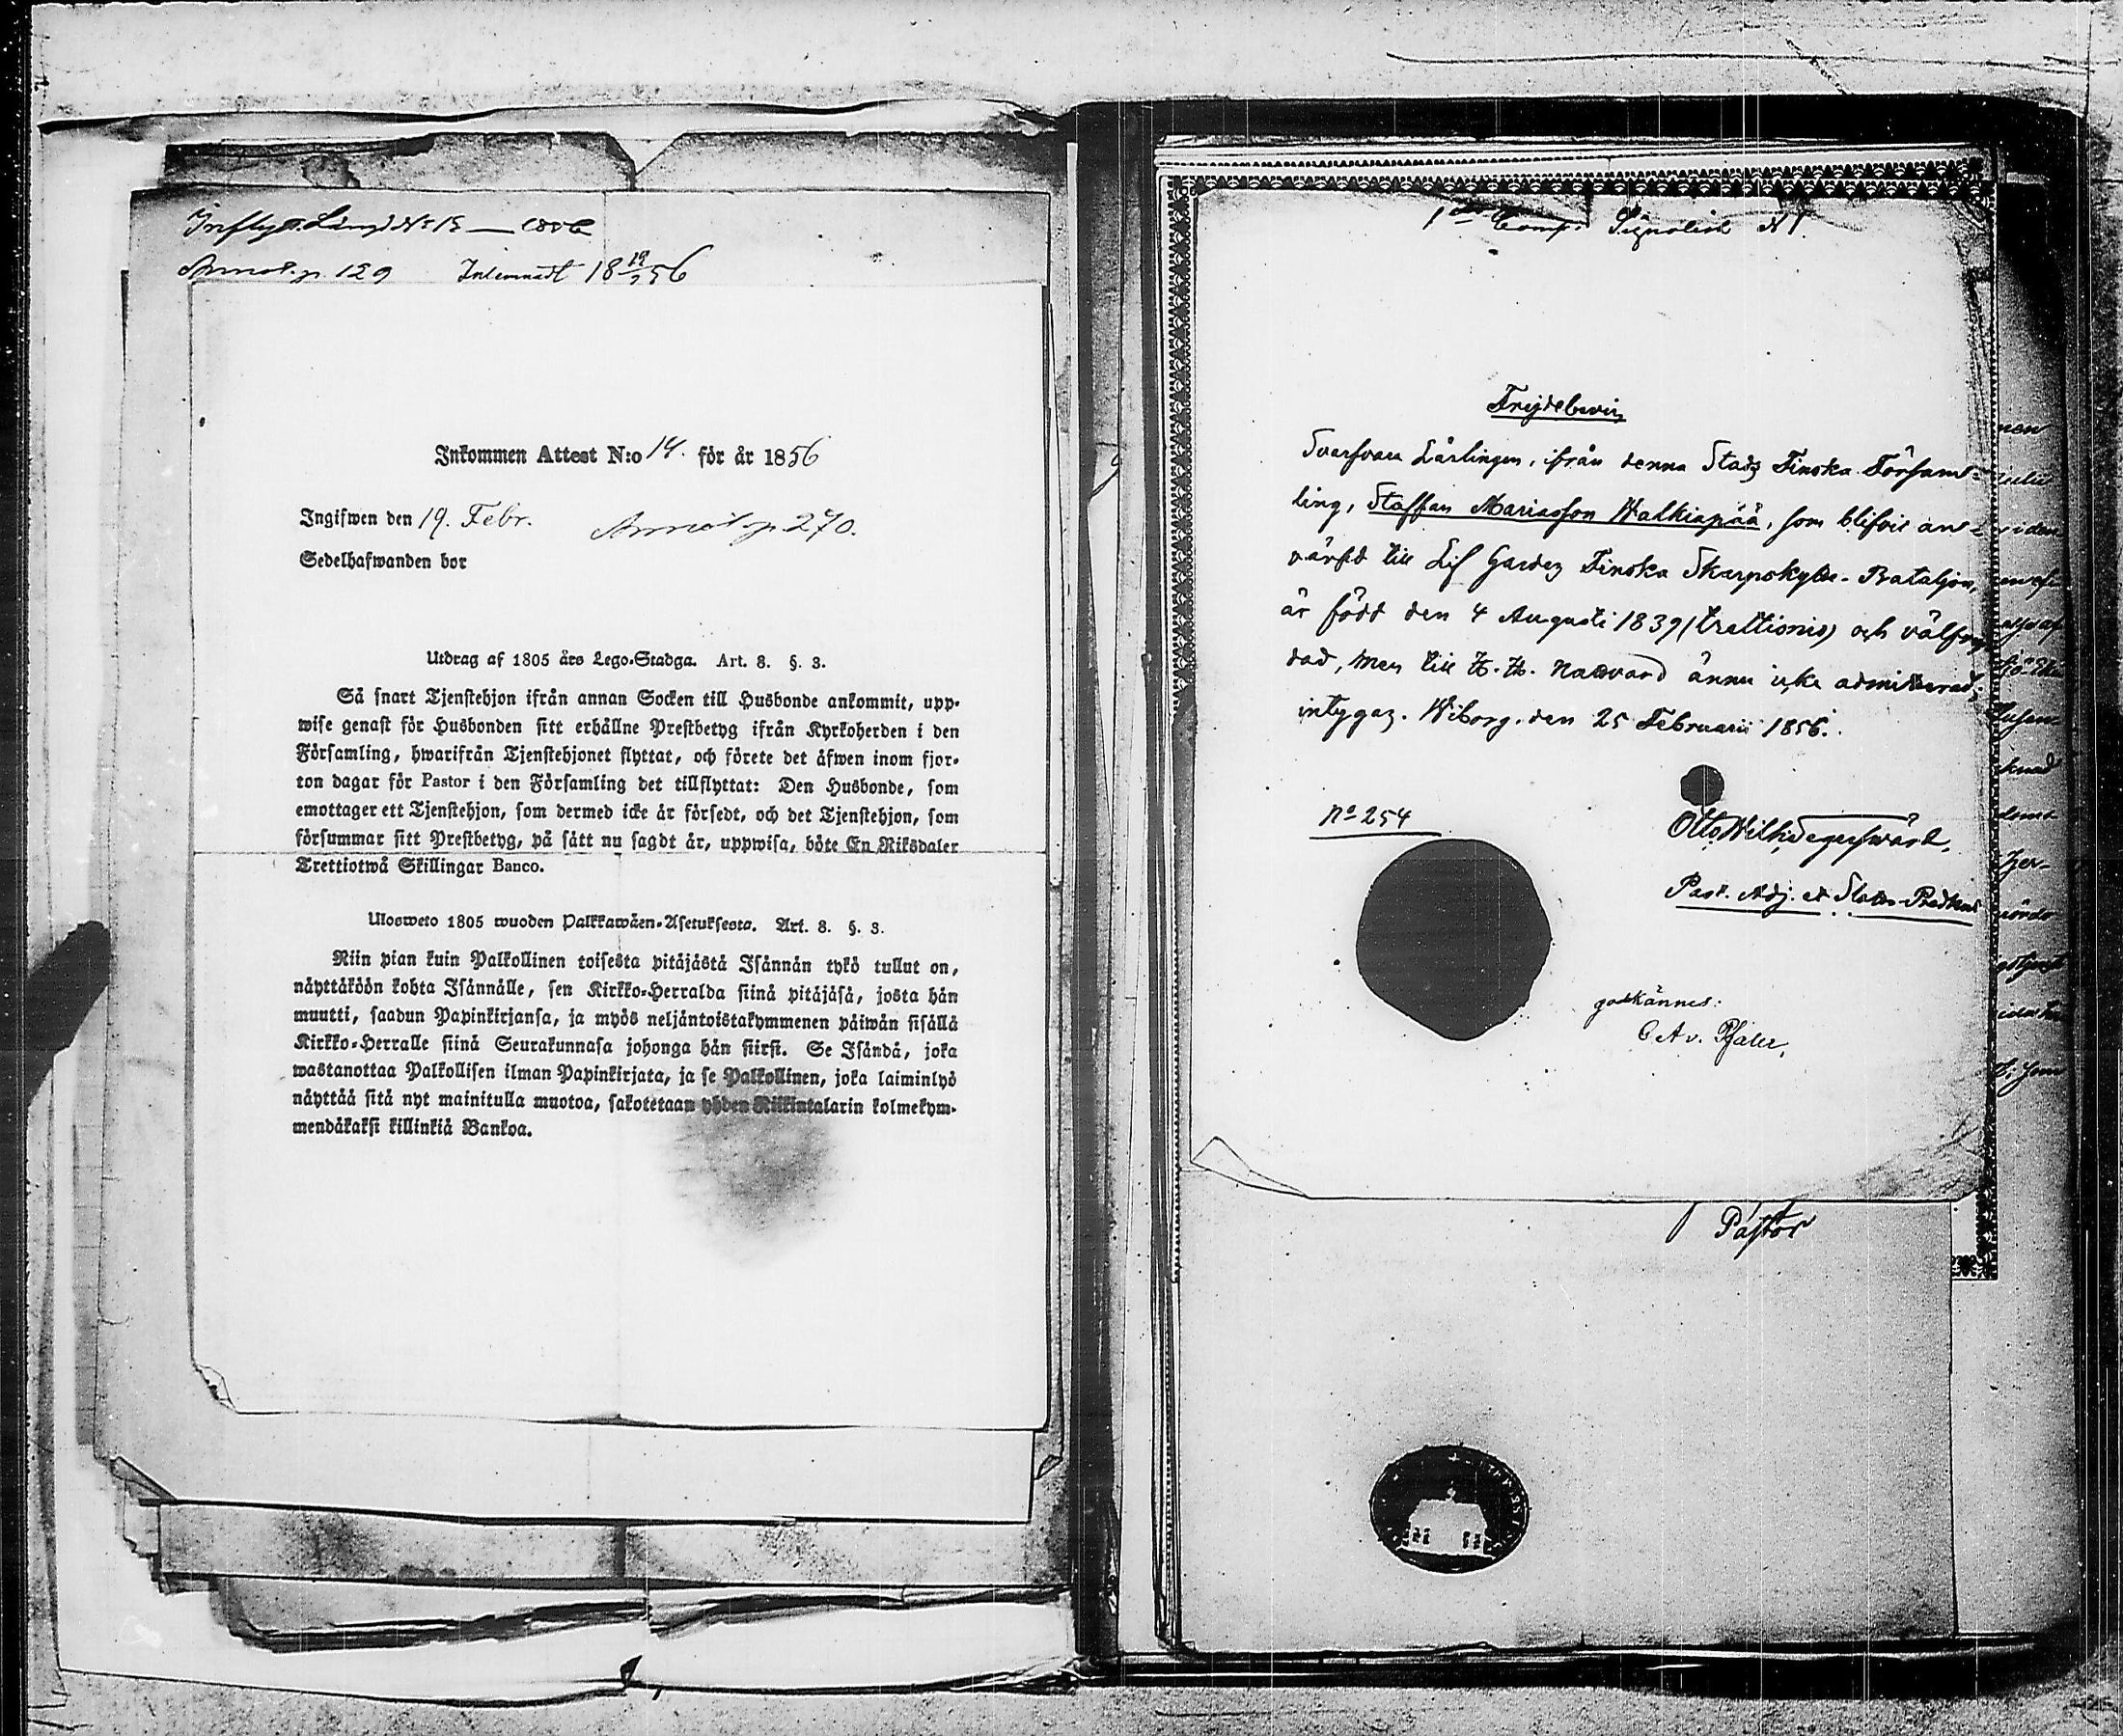 Inflyttn. Längd No 15
Annot. p. 129 Inlemnadt 18 19/2 56
Inkommen Attest N:o 14. för år 1856
Ingifwen den 19. Febr. Annot. p. 270.
Sedelhafwanden bor
Utdrag af 1805 års Lego-Stadga. Art. 8. §. 3.
Så snart Tjenstehjon ifrån annan Socken till Husbonde ankommit, upp-
wise genast för Husbonden sitt erhållne Prestbetyg ifrån Kyrkoherden i den
Församling, hwarifrån Tjenstehjonet flyttat, och förete det äfwen inom fjor-
ton dagar för Pastor i den Församling det tillflyttat: Den Husbonde, som
emottager ett Tjenstehjon, som dermed icke är försedt, och det Tjenstehjon, som
försummar sitt Prestbetyg, på sätt nu sagdt är, uppwisa, böte En Riksdaler
Trettiotwå Skillingar Banco.
Ulosweto 1805 wuoden Palkkawäen-Asetuksesta. Art. 8. §. 3.
Niin pian kuin Palkollinen toisesta pitäjästä Isännän tykö tullut on,
näyttäköön kohta Isännälle, sen Kirkko-Herralda siinä pitäjäsä, josta hän
muutti, saadun Papinkirjansa, ja myös neljäntoistakymmenen päiwän sisällä
Kirkko-Herralle siinä Seurakunnasa johonga hän siirsi. Se Isändä, joka
wastanottaa Palkollisen ilman Papinkirjata, ja se Palkollinen, joka laiminlyö
näyttää sitä nyt mainitulla muotoa, sakotetaan yhden Riikintalarin kolmekym-
mendäkaksi killinkiä Bankoa.
1sta Comp. N 1.
Frejdebevis
Svarfvare Lärlingen, ifrån denna Stads Finska Församl-
ling, Staffan Mariasson Walkiapää, som blifvit an-
värfd till Lif Gardes Finska Skarpskytte-Bataljon,
är född den 4 Augusti 1839 (trettionio) och välfrej
dad, men till H. H. Nattvard ännu icke admitterad;
intygas. Wiborg, den 25 Februarii 1856.
No 254
Otto Wilh.
Past. Adj. et Slotts-Predikant
godkännes:
C A v. Pfaler,
Pastor